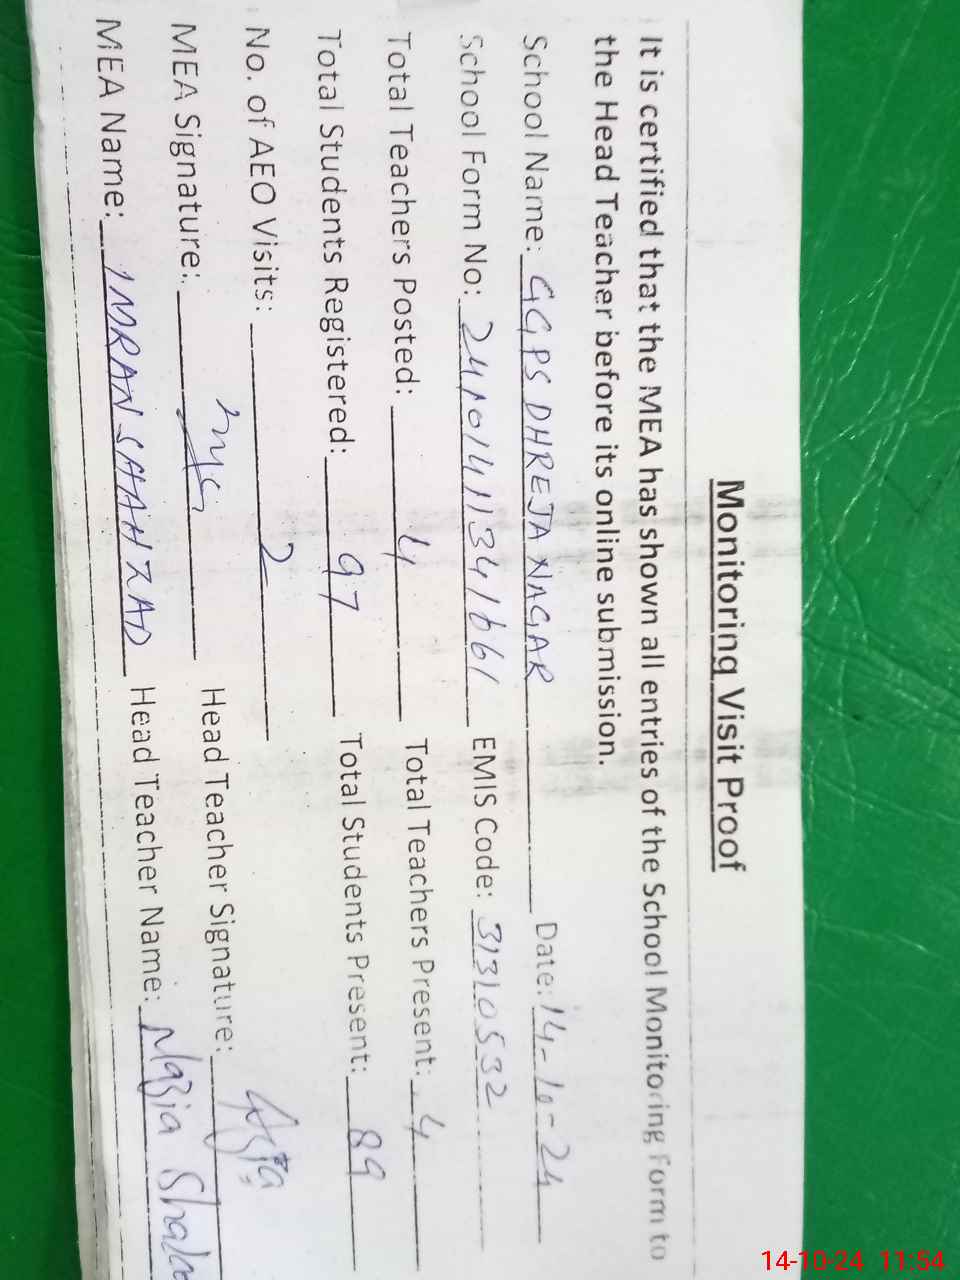 Monitoring Visit Proof
It is certified that the MEA has shown all entries of the School Monitoring Form to
the Head Teacher before its online submission.
School Name: GGPS DHREJA NAGAR Date: 14-10-24
School Form No: 2410141341661 EMIS Code: 31310532
Total Teachers Posted: 4 Total Teachers Present: 4
Total Students Registered: 97 Total Students Present: 89
No. of AEO Visits: 2
MEA Signature: Head Teacher Signature:
MEA Name: IMRAN SHAHZAD Head Teacher Name: Nazia
14-10-24 11:54